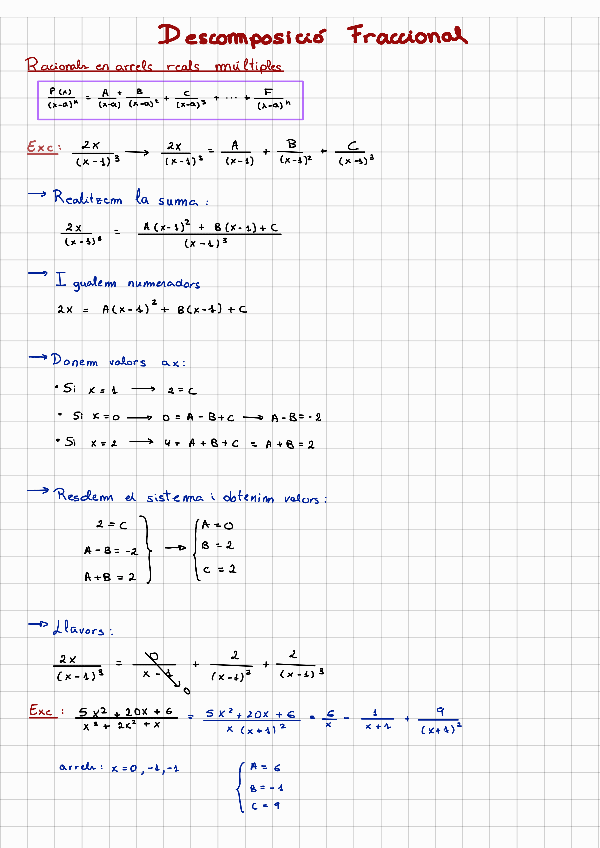 Descomposició Fraccional
Racionals en arrels reals múltiples
P(x)/(x-a)ⁿ = A/(x-a) + B/(x-a)² + C/(x-a)³ + ... + F/(x-a)ⁿ
Exc: 2x/(x-1)³ → 2x/(x-1)³ = A/(x-1) + B/(x-1)² + C/(x-1)³
→ Realitzem la suma:
2x/(x-1)³ = A(x-1)² + B(x-1) + C/(x-1)³
→ Igualem numeradors
2x = A(x-1)² + B(x-1) + C
→ Donem valors a x:
• Si x = 1 → 2 = C
• Si x = 0 → 0 = A - B + C → A - B = -2
• Si x = 2 → 4 = A + B + C = A + B = 2
→ Resolem el sistema i obtenim valors:
2 = C
A - B = -2
A + B = 2
→
A = 0
B = 2
C = 2
→ Llavors:
2x/(x-1)³ = 0/x-1 → 0 + 2/(x-1)² + 2/(x-1)³
Exc: 5x² + 20x + 6/x³ + 2x² + x = 5x² + 20x + 6/x(x+1)² = 6/x - 1/x+1 + 9/(x+1)²
arrels: x = 0, -1, -1
A = 6
B = -1
C = 9